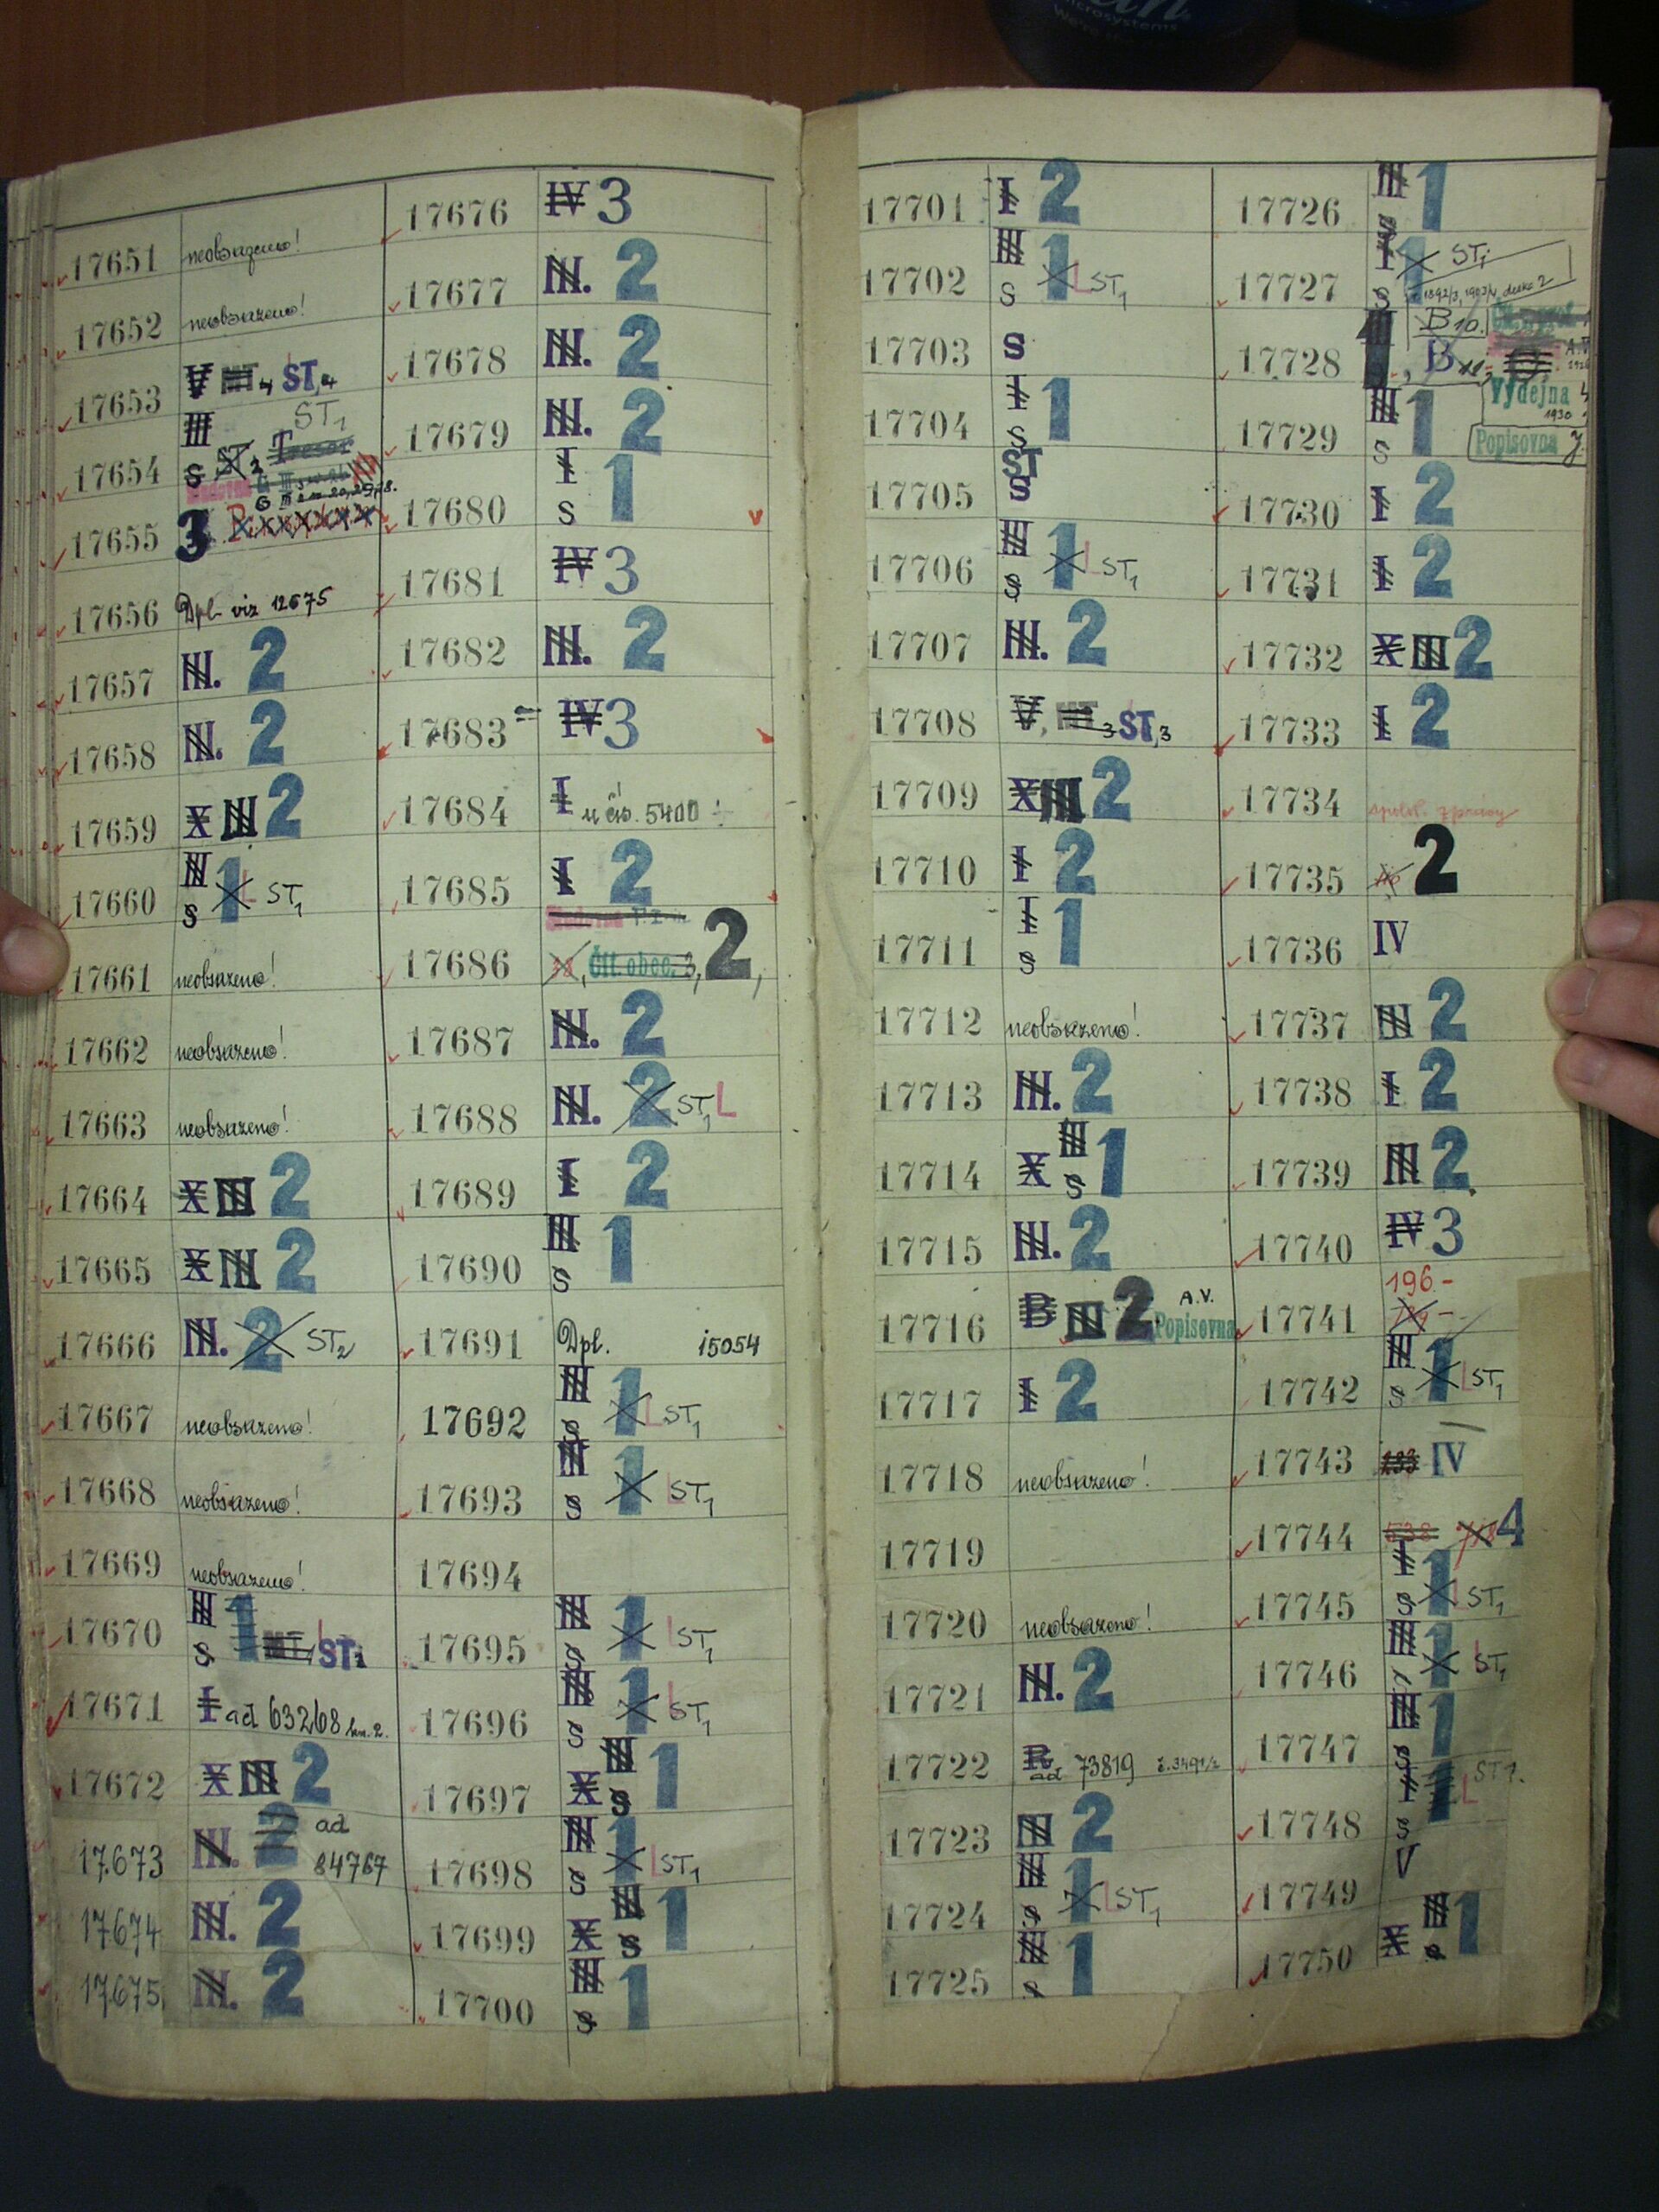 Microsystems
17651 neobsazeno!
17652 neobsazeno!
17653 V ST, 4
17654 III S ST 2 Tresor ST1
17655 3
17656 Dpl. viz 12675
17657 III. 2
17658 III. 2
17659 X III 2
17660 III S 1 L ST1
17661 neobsazeno!
17662 neobsazeno!
17663 neobsazeno!
17664 X III 2
17665 X III 2
17666 III. 2 ST2
17667 neobsazeno!
17668 neobsazeno!
17669 neobsazeno!
17670 III S 1 L ST1
17671 I ad 63268
17672 X III 2
17673 III. 2 ad 84767
17674 III. 2
17675 III. 2
17676 IV 3
17677 III. 2
17678 III. 2
17679 III. 2
17680 I S 1
17681 IV 3
17682 III. 2
17683 IV 3
17684 I u čís. 5400
17685 I 2
17686 Čít. obec. 3, 2,
17687 III. 2
17688 III. 2 ST1 L
17689 I 2
17690 III S 1
17691 Dpl. 15054
17692 III S 1 L ST1
17693 III S 1 L ST1
17694
17695 III S 1 L ST1
17696 III S 1 L ST1
17697 X III S 1
17698 III S 1 L ST1
17699 X III S 1
17700 III S 1
17701 I 2
17702 III S 1 L ST1
17703 S
17704 I S 1
17705 ST S
17706 III S 1 L ST1
17707 III. 2
17708 V, 3 ST, 3
17709 X III 2
17710 I 2
17711 I S 1
17712 neobsazeno!
17713 III. 2
17714 X III S 1
17715 III. 2
17716 B III 2 A.V. Popisovna
17717 I 2
17718 neobsazeno!
17719
17720 neobsazeno!
17721 III. 2
17722 ad 73819
17723 III 2
17724 III S 1 L ST1
17725 III S 1
17726 III S 1
17727 I S 1 ST1
17728 III B 10. B 11, A.V. Výdejna 1930
17729 III S 1 Popisovna
17730 I 2
17731 I 2
17732 X III 2
17733 I 2
17734 spolk. zprávy
17735 2
17736 IV
17737 III 2
17738 I 2
17739 III 2
17740 IV 3
17741 196-
17742 III S 1 L ST1
17743 IV
17744 538 4
17745 I S 1 L ST1
17746 III 1 L ST1
17747 III S 1
17748 I S 1 L ST1.
17749 V
17750 X III S 1